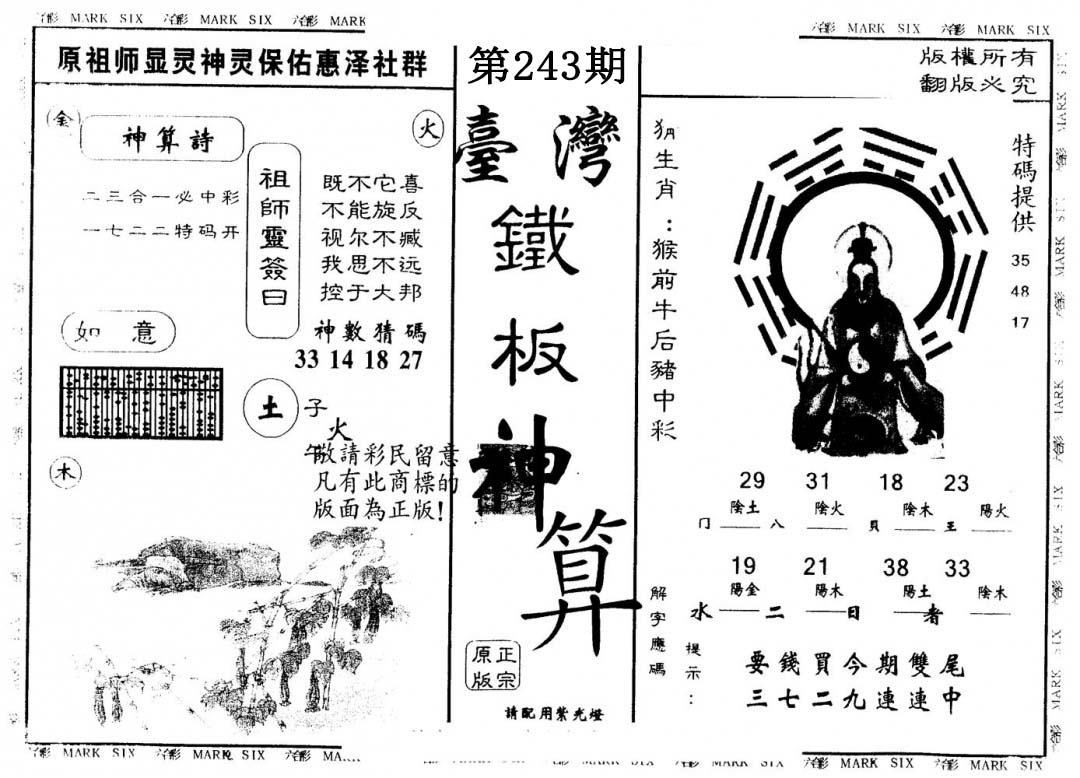 六合彩 MARK SIX 六合彩 MARK SIX 六合彩 MARK
六合彩 MARK SIX 六合彩 MARK SIX
原祖师显灵神灵保佑惠泽社群
第243期
版權所有
翻版必究
金
神算詩
火
二三合一必中彩
一七二二特码开
祖師靈簽曰
既不它喜
不能旋反
视尔不臧
我思不远
控于大邦
神數猜碼
33 14 18 27
如意
土
子
火
午
敬請彩民留意
凡有此商標的
版面為正版!
木
臺灣
鐵板神算
正宗
原版
請配用紫光燈
生肖：猴前牛后豬中彩
特碼提供
35
48
17
29 31 18 23
陰土 陰火 陰木 陽火
门 八 貝 王
19 21 38 33
陽金 陽木 陽土 陰木
水 二 日 者
解字應碼
提示：
要錢買今期雙尾
三七二九連連中
六合彩 MARK SIX 六合彩 MARK SIX 六合彩
六合彩 MARK SIX 六合彩 MARK SIX 六合彩 MARK SIX